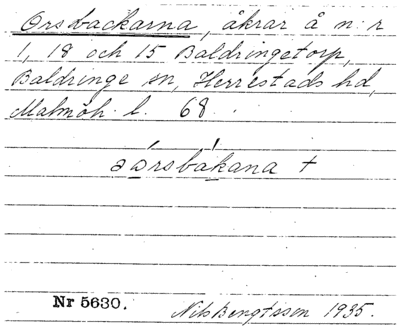 Orsbackarna, åkrar å n:r
1, 18 och 15 Baldringetorp,
Baldringe sn, Herrestads hd,
Malmöh. l. 68.
aó̱rsbákana +
Nr 5630.
Nils Bengtsson 1935.